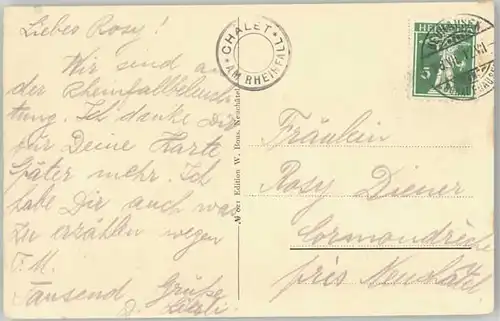 Liebes Rosy!
Wir sind an
der Rheinfallbeleuch
tung. Ich danke Dir
für Deine Karte
später mehr. Ich
habe Dir auch was
zu erzählen wegen
T. M.
Tausend Grüße
CHALET
AM RHEINFALL
HELVETIA
5
№ 881 Edition W. Bous, Neuchâtel
Fräulein
Rosy Diener
Cormondrèche
près Neuchâtel